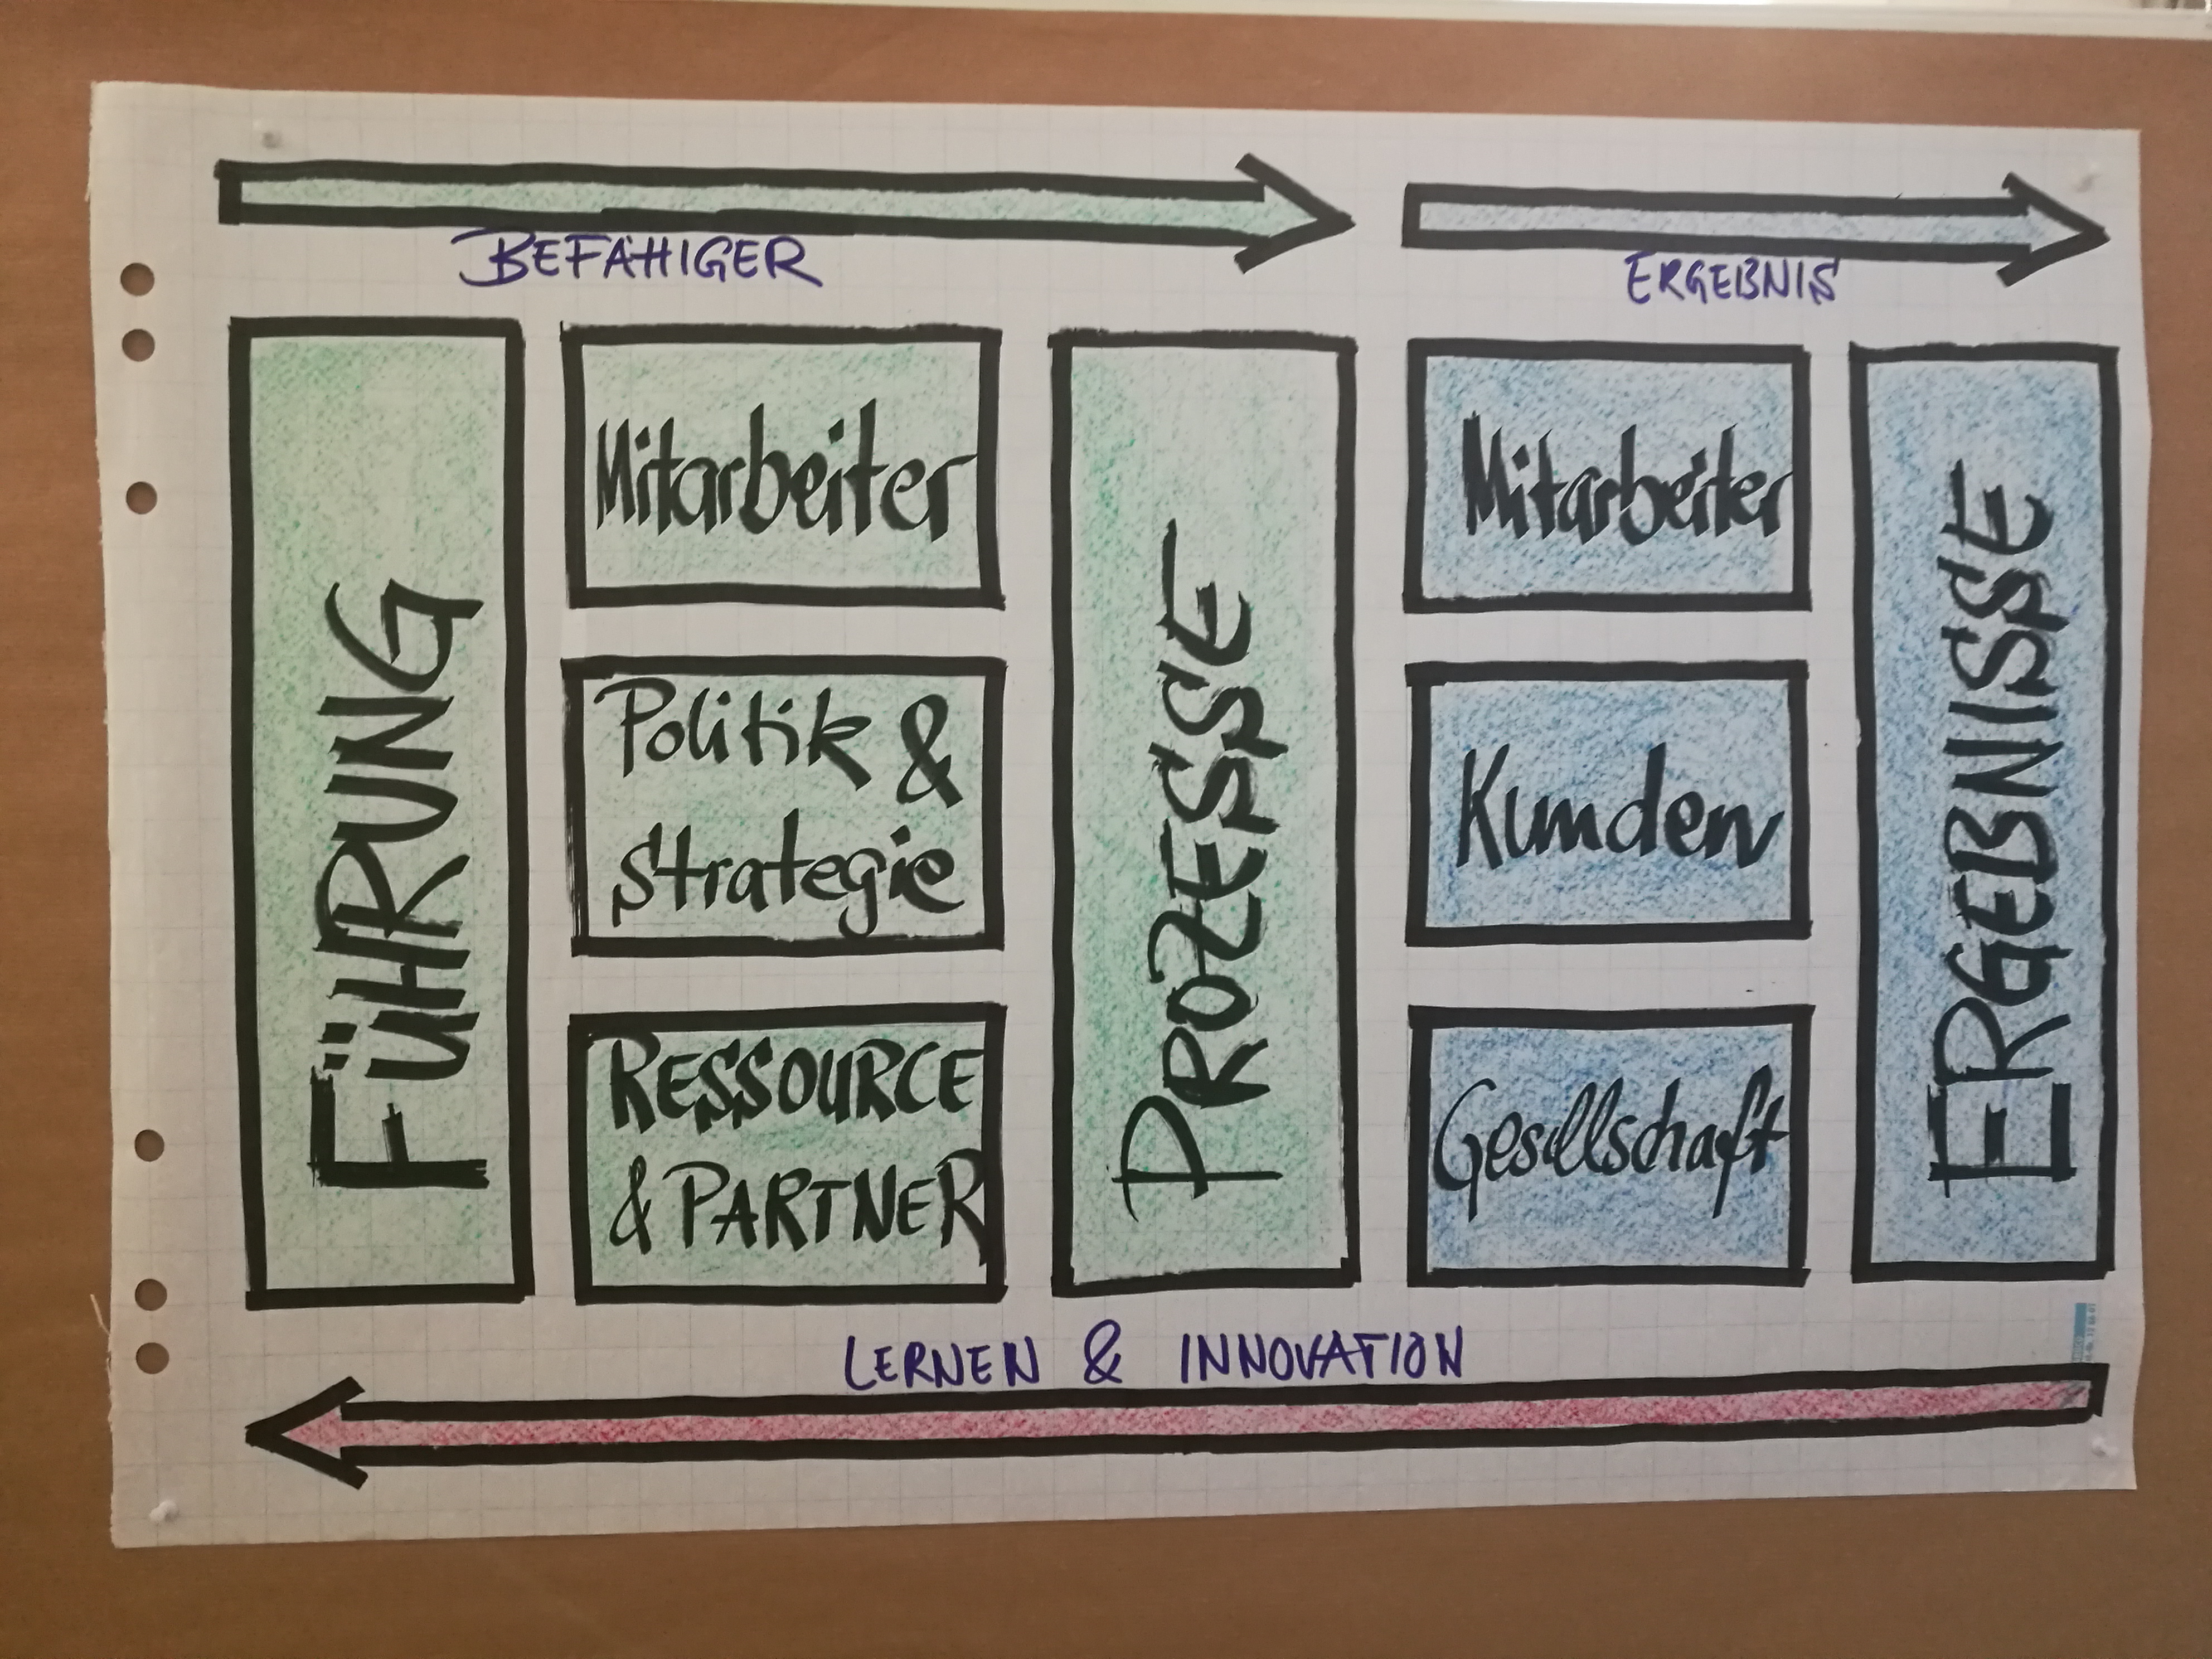 BEFÄHIGER
ERGEBNIS
FÜHRUNG
Mitarbeiter
Politik &
Strategie
RESSOURCE
& PARTNER
PROZESSE
Mitarbeiter
Kunden
Gesellschaft
ERGEBNISSE
LERNEN & INNOVATION